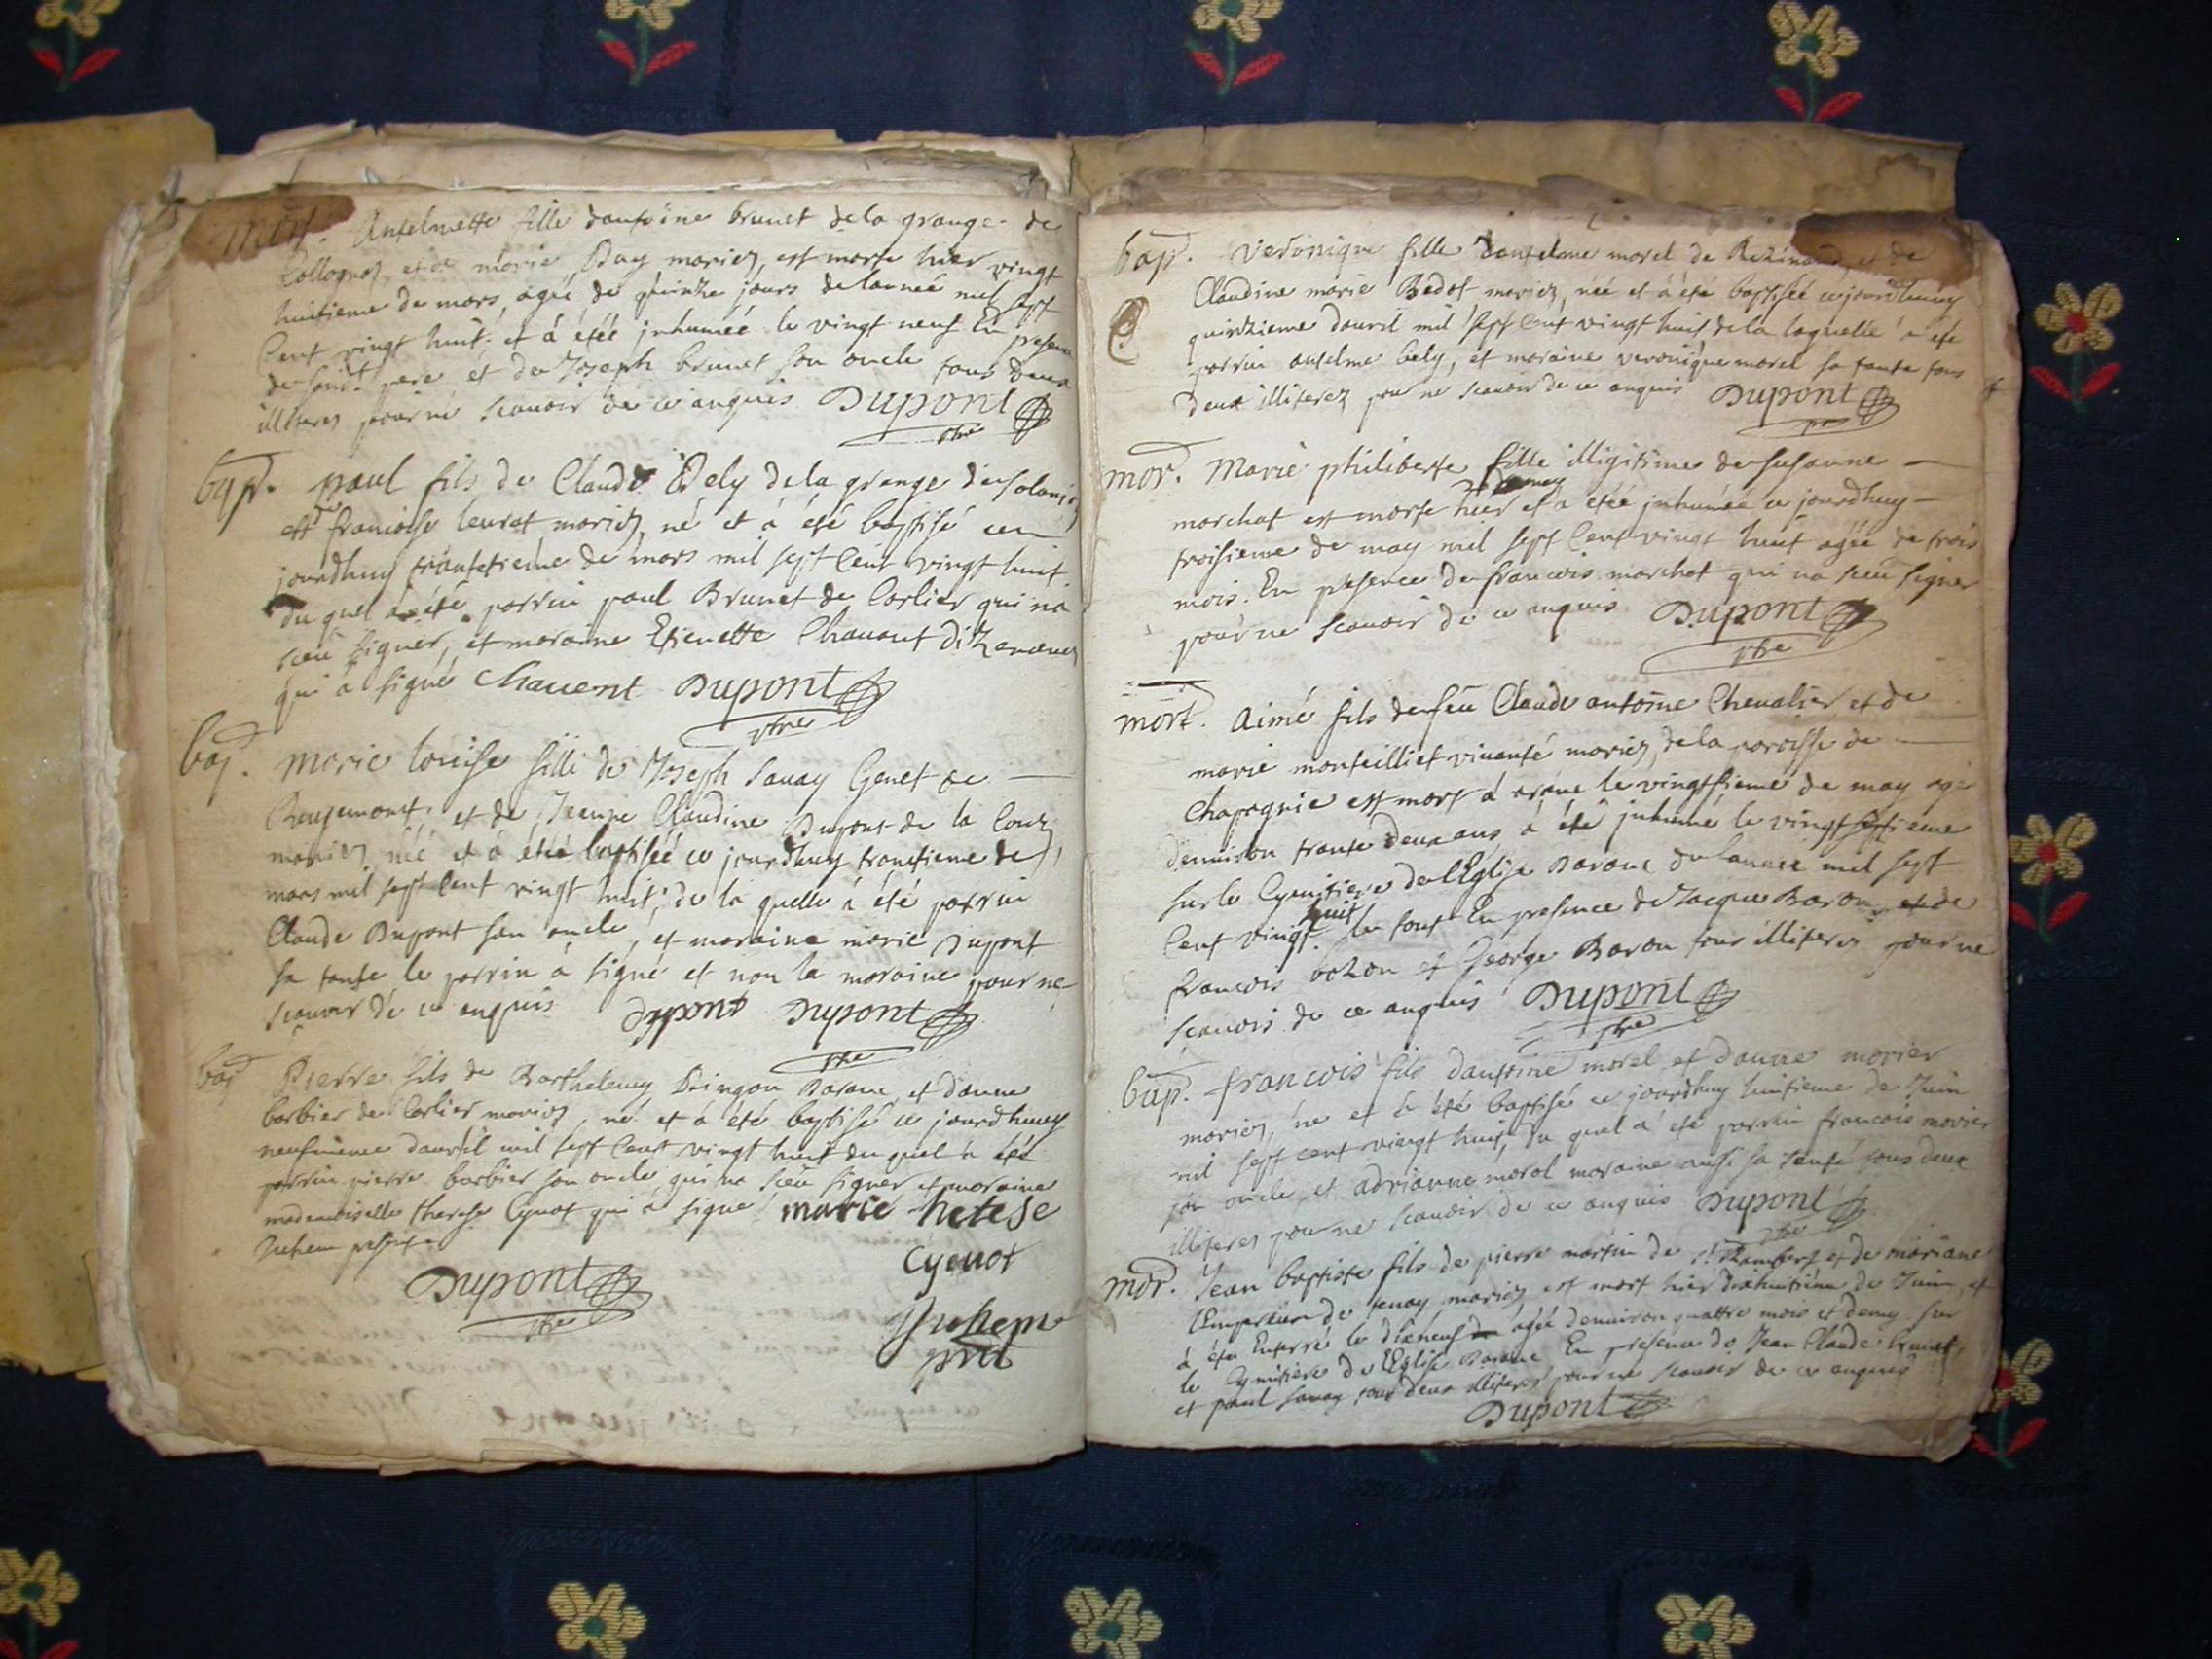 mort. Anselmette fille dantoine brunet de la grange de
et de marie Bay mariez, est morte hier vingt
huitieme de mars, agée de quinze jours de lannée mil sept
Cent vingt huit. et à étée inhumée le vingt neuf En presence
de sondt. pere et de Joseph brunet son oncle tous deux
illiteres pour ne scauoir de ce enquis Dupont
ptre
bap. paul fils de Claude Bely de la grange de
et de francoise leurat mariez, né et à été baptisé ce
jourdhuy trantetieme de mars mil sept Cent vingt huit
du quel à été parrin paul Brunet de Corlier qui na
sceu signer, et maraine Etienette Chauant dit
qui à signé Chauent Dupont
ptre
bap. marie louise fille de Joseph Sauay Genet de
Rougemont, et de Jeanne Claudine Dupont de la Cour
mariez née et à étée baptisée ce jourdhuy trantieme de
mars mil sept Cent vingt huit, de la quelle à été parrin
Claude Dupont son oncle, et maraine marie Dupont
sa tante le parrin à signé et non la maraine pour ne
scauoir de ce enquis dupont Dupont
ptre
bap Pierre fils de Barthelemy Dingon Darane et danne
barbier de Corlier mariez, né et à été baptisé ce jourdhuy
neufuieme dauril mil sept Cent vingt huit du quel à été
parrin pierre barbier son oncle qui na sceu signer et maraine
mademoiselle therese Cynot qui à signé marie tetese
Cyenot
Dupont
ptre
bap. Veronique fille danselme morel de et de
Claudine marie Bedot mariez, née et à été baptisée ce jourdhuy
quinzieme dauril mil sept Cent vingt huit de la laquelle à été
parrin anselme bely, et maraine veronique morel sa tante tous
deux illiterez pour ne scauoir de ce enquis Dupont
ptre
mor. Marie philiberte fille illigitime de susanne
marchat est morte hier et à étée inhumée ce jourdhuy
troisieme de may mil sept Cent vingt huit agée de trois
mois. En presence de francois marchat qui na sceu signer
pour ne scauoir de ce enquis Dupont
ptre
mort. Aimé fils de feu Claude antoine Cheualier et de
marie montilliet viuante mariez, de la paroisse de
Chapagnie est mort à arane le vingtsieme de may agé
denuiron trante deux ans, à été inhumé le vingtseptieme
sur le Cymitiere de lEglise Darane de lannée mil sept
Cent vingt huit le tout En presence de Jacque Baron et de
francois bozon et George Baron tous illiteres pour ne
scauois de ce enquis Dupont
ptre
bap. francois fils dantoine morel et danne morier
mariez, né et à été baptisé ce jourdhuy huitieme de Juin
mil sept cent vingt huit, du quel à été parrin francois morier
son oncle, et adrianne morel maraine aussi sa tante tous deux
illiteres pour ne scauoir de ce enquis Dupont
ptre
mor. Jean baptiste fils de pierre martin de St. Rambert et de mariane
de tenay mariez est mort hier dixhuitiéme de Juin, et
à été Enterré le dixneuf agé denuiron quattre mois et demy sur
le Cymitiere de lEglise Darane En presence de Jean Claude brunet,
et paul sauay tous deux illiteres pour ne scauoir de ce enquis
Dupont